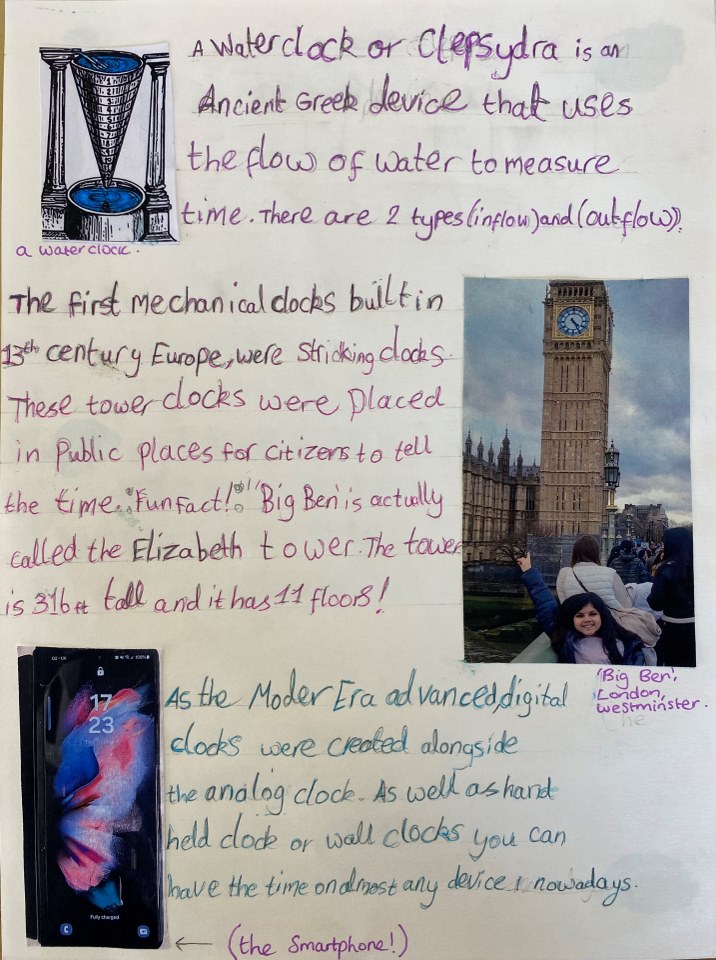 A Water clock or Clepsydra is an
Ancient Greek device that uses
the flow of water to measure
time. There are 2 types (inflow) and (outflow).
a water clock.
The first mechanical clocks built in
13th century Europe, were Stricking clocks.
These tower clocks were Placed
in Public places for citizens to tell
the time. "Fun Fact!" 'Big Ben' is actually
called the Elizabeth tower. The tower
is 316 ft tall and it has 11 floors!
'Big Ben',
London,
westminster.
the
O2 - UK
100%
17
23
Fully charged
As the Moder Era advanced, digital
clocks were created alongside
the analog clock. As well as hand
held clock or wall clocks you can
have the time on almost any device nowadays.
← (the Smartphone!)